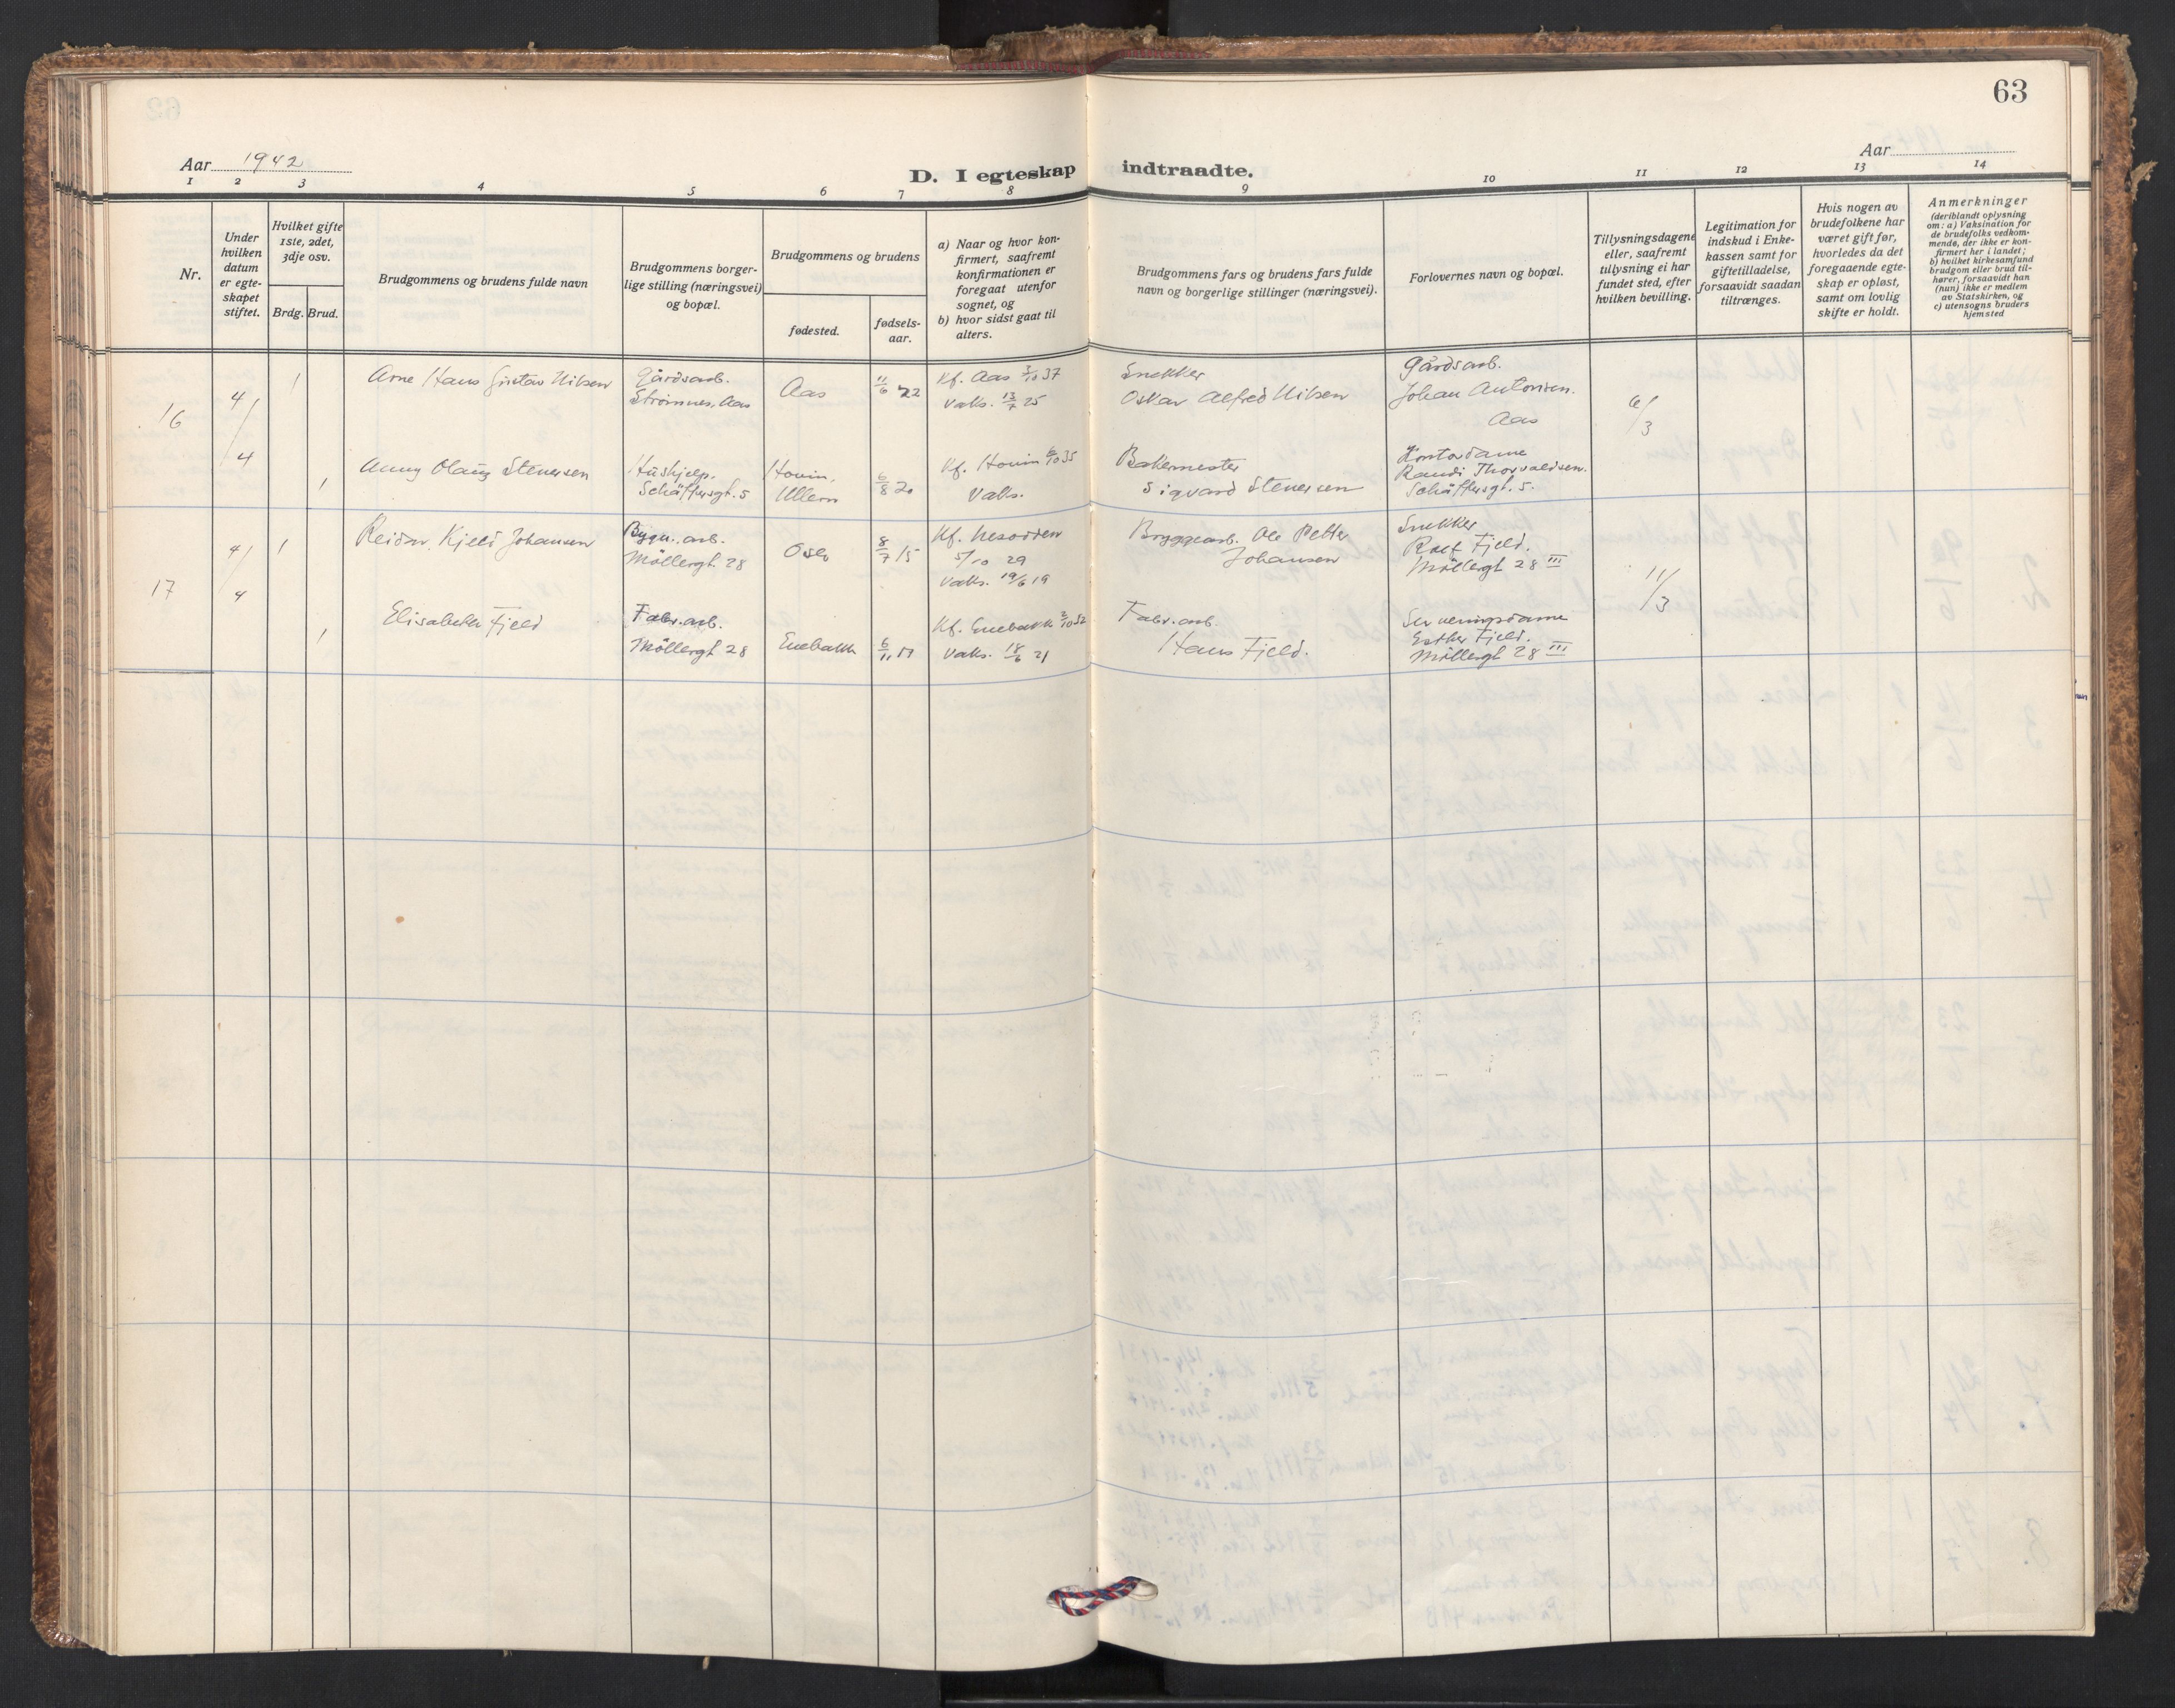 63
Aar 1942
D. I egteskap indtraadte.
Aar
1 2 3 4 5 6 7 8 9 10 11 12 13 14
Nr.
Under hvilken datum er egte-skapet stiftet.
Hvilket gifte 1ste, 2det, 3dje osv.
Brdg. Brud.
Brudgommens og brudens fulde navn
Brudgommens borger-
lige stilling (næringsvei)
og bopæl.
Brudgommens og brudens
fødested.
fødsels-
aar.
a) Naar og hvor kon-
firmert, saafremt
konfirmationen er
foregaat utenfor
sognet, og
b) hvor sidst gaat til
alters.
Brudgommens fars og brudens fars fulde
navn og borgerlige stillinger (næringsvei).
Forlovernes navn og bopæl.
Tillysningsdagene
eller, saafremt
tillysning ei har
fundet sted, efter
hvilken bevilling.
Legitimation for
indskud i Enke-
kassen samt for
giftetilladelse,
forsaavidt saadan
tiltrænges.
Hvis nogen av
brudefolkene har
været gift før,
hvorledes da det
foregaaende egte-
skap er opløst,
samt om lovlig
skifte er holdt.
Anmerkninger
(deriblandt oplysning
om: a) Vaksination for
de brudefolks vedkom-
mende, der ikke er kon-
firmert her i landet;
b) hvilket kirkesamfund
brudgom eller brud til-
hører, forsaavidt han
(hun) ikke er medlem
av Statskirken, og
c) utensogns bruders
hjemsted
16
4/4
1
Arne Hans Gustav Nilsen
Gårdsarb.
Strømnes, Aas
Aas
11/6 22
Kf. Aas 3/10 37
Vaks. 13/7 25
Snekker
Oskar Alfred Nilsen
Gårdsarb.
Johan Antonisen.
Aas
6/3
1
Anny Olaug Stenersen
Hushjelp.
Schäffersgt. 5
Hovin,
Ullern
6/8 20
Kf. Hovin 6/10 35
Vaks.
Bakermester
Sigvard Stenersen
Kontordame
Randi Thorvaldsen.
Schäffersgt. 5.
17
4/4
1
Reidar Kjeld Johansen
Bygn. arb.
Möllergt 28
Oslo
8/7 15
Kf. Nesodden
5/10 29
Vaks. 19/6 19
Bryggearb. Ole Petter
Johansen
Snekker
Rolf Fjeld.
Möllergt 28 III
11/3
1
Elisabeth Fjeld
Fabr. arb.
Möllergt 28
Enebakk
6/11 17
Kf. Enebakk 2/10 32
Vaks. 18/6 21
Fabr. arb.
Hans Fjeld.
Serveringsdame
Esther Fjeld.
Möllergt 28 III